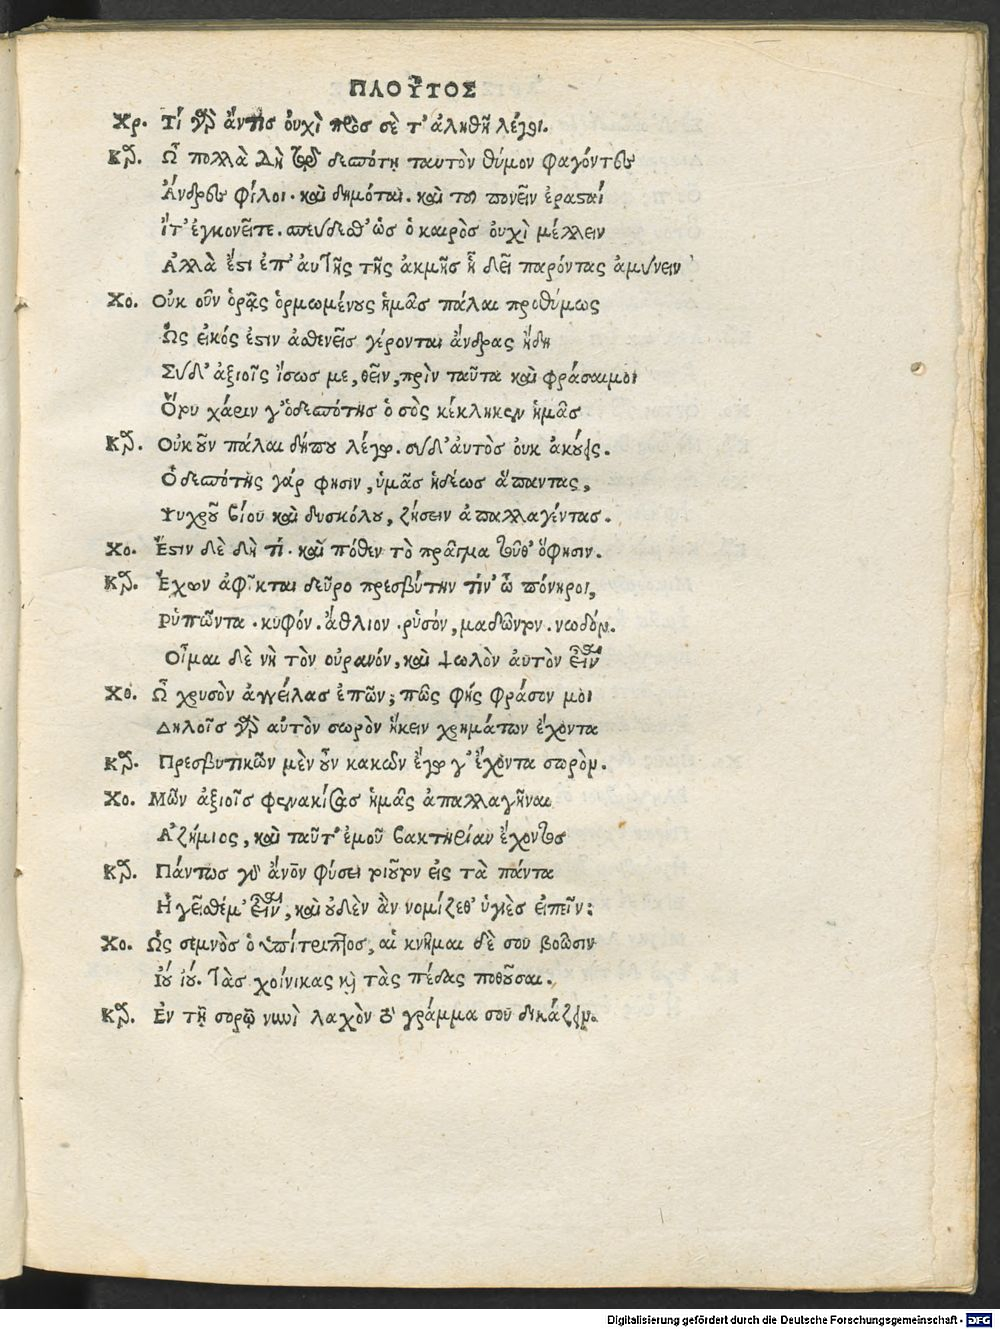 ΠΛΟΥ͂ΤΟΣ
Χρ. Τί γὰρ ἄντις ὀυχὶ πρὸσ σὲ τ' ἀληθῆ λέγοι.
Κα. Ὦ πολλὰ δὴ τῷ δεσπότῃ ταυτὸν θύμον φαγόντες
Ἄνδρες φίλοι. καὶ δημόται. καὶ του πονεῖν ἐρασταί
Ἴτ' ἐγκονεῖτε. σπεύδεθ' ὡσ ὁ καιρὸσ ὀυχὶ μέλλειν
Ἀλλὰ ἔστι ἐπ' ἀυτῆς τῆς ἀκμῆσ ᾗ δεῖ παρόντας ἀμύνειν
Χο. Οὐκ οῦν ὁρᾷς ὁρμωμένους ἡμᾶσ πάλαι προθύμως
Ὡς εἰκός ἐστιν ἀσθενεῖσ γέρονται ἄνδρας ἤδη
Σὺ δ' ἀξιοῖς ἴσωσ με, θεῖν, πρὶν ταῦτα καὶ φράσαι μοι
Ὅτου χάριν γ' ὁ δεσπότησ ὁ σὸς κέκληκεν ἡμᾶσ
Κα. Οὐκ οῦν πάλαι δήπου λέγω. σὺ δ' ἀυτὸσ ὀυκ ἀκούεις.
Ὁ δεσπότης γάρ φησιν, ὑμᾶσ ἡδέωσ ἅπαντας,
Ψυχροῦ βίου καὶ δυσκόλου, ζήσειν ἀπαλλαγέντασ.
Χο. Ἔστιν δὲ δὴ τί. καὶ πόθεν τὸ πρᾶγμα τοῦθ' ὅ φησιν.
Κα. Ἔχων ἀφῖκται δεῦρο πρεσβύτην τίν' ὦ πόνηροι,
Ρὑπῶντα. κυφόν. ἄθλιον. ῥυσόν, μαδῶντον. νωδόν.
Οἶμαι δὲ νὴ τὸν ουρανόν, καὶ ψωλὸν ἀυτὸν εἶναι
Χο. Ὦ χρυσὸν ἀγγείλασ ἐπῶν; πῶς φῄς φράσον μοι
Δηλοῖσ γὰρ αὐτὸν σωρὸν ἥκειν χρημάτων ἔχοντα
Κα. Πρεσβυτικῶν μὲν οῦν κακῶν ἔγωγ' ἔχοντα σωρὸν.
Χο. Μῶν ἀξιοῖσ φενακίσας ἡμᾶς ἀπαλλαγῆναι
Ἀζήμιος, καὶ ταῦτ' ἐμοῦ βακτηρίαν ἔχοντοσ
Κα. Πάντωσ γὰρ ἄνον φύσει τιοῦτον εἰς τὰ πάντα
Ἡγεῖσθέ μ' εἶναι, καὶ οὐδὲν ἂν νομίζεθ' ὑγιὲσ ἐιπεῖν;
Χο. Ὡς σεμνὸσ ὁ ἐπίτριπτος, αἱ κνῆμαι δὲ σου βοῶσιν
Ἰοὺ ἰού. Τὰσ χοίνικας καὶ τὰς πέδας ποθοῦσαι.
Κα. Ἐν τῇ σορῷ νυνὶ λαχὸν τὸ γράμμα σοῦ δικάζειν.
Digitalisierung gefördert durch die Deutsche Forschungsgemeinschaft - DFG